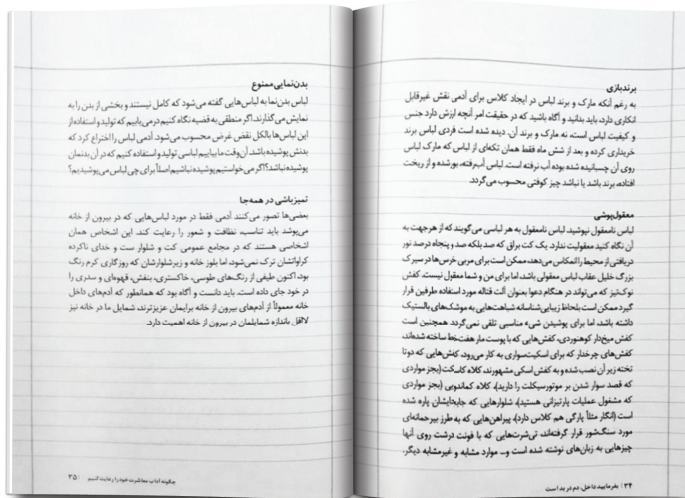 برندبازی
به رغم آنکه مارک و برند لباس در ایجاد کلاس برای آدمی نقش غیرقابل
انکاری دارد، باید بدانید و آگاه باشید که در حقیقت امر آنچه ارزش دارد جنس
و کیفیت لباس است، نه مارک و برند آن. دیده شده است فردی لباس برند
خریداری کرده و بعد از شش ماه فقط همان تکه‌ای از لباس که مارک لباس
روی آن چسبانیده شده بوده آب نرفته است. لباس آب‌رفته، بورشده و از ریخت
افتاده، برند باشد یا نباشد چیز کوفتی محسوب می‌گردد.
معقول‌پوشی
لباس نامعقول نپوشید. لباس نامعقول به هر لباسی می‌گویند که از هر جهت به
آن نگاه کنید معقولیت ندارد. یک کت براق که صد بلکه صد و پنجاه درصد نور
دریافتی از محیط را انعکاس می‌دهد، ممکن است برای مربی خرس‌ها در سیرک
بزرگ خلیل عقاب لباس معقولی باشد، اما برای من و شما معقول نیست. کفش
نوک‌تیز که می‌تواند در هنگام دعوا بعنوان آلت قتاله مورد استفاده طرفین قرار
گیرد ممکن است بلحاظ زیبایی‌شناسانه شباهت‌هایی به موشک‌های بالستیک
داشته باشد، اما برای پوشیدن شیء مناسبی تلقی نمی‌گردد. همچنین است
کفش میخ‌دار کوهنوردی، کفش‌هایی که با پوست مار هفت‌خط ساخته شده‌اند،
کفش‌های چرخدار که برای اسکیت‌سواری به کار می‌رود، کفش‌هایی که دو تا
تخته زیر آن نصب شده و به کفش اسکی مشهورند، کلاه کاسکت (بجز مواردی
که قصد سوار شدن بر موتورسیکلت را دارید)، کلاه کماندویی (بجز مواردی
که مشغول عملیات پارتیزانی هستید)، شلوارهایی که جابجایشان پاره شده
است (انگار مثلاً پارگی هم کلاس دارد)، پیراهن‌هایی که به طرز بیرحمانه‌ای
مورد سنگ‌شور قرار گرفته‌اند، تی‌شرت‌هایی که با فونت درشت روی آنها
چیزهایی به زبان‌های نوشته شده است و... موارد مشابه و غیرمشابه دیگر.
۳۴ | بفرمایید داخل، دم در بد است
بدن‌نمایی ممنوع
لباس بدن‌نما به لباس‌هایی گفته می‌شود که کامل نیستند و بخشی از بدن را به
نمایش می‌گذارند. اگر منطقی به قضیه نگاه کنیم درمی‌یابیم که تولید و استفاده از
این لباس‌ها بالکل نقض غرض محسوب می‌شود. آدمی لباس را اختراع کرد که
بدنش پوشیده باشد. آن‌وقت ما بیاییم لباسی تولید و استفاده کنیم که در آن بدنمان
پوشیده نباشد؟ اگر می‌خواستیم پوشیده نباشیم اصلاً برای چی لباس می‌پوشیدیم؟
تمیزباشی در همه‌جا
بعضی‌ها تصور می‌کنند آدمی فقط در مورد لباس‌هایی که در بیرون از خانه
می‌پوشد باید تناسب، نظافت و شعور را رعایت کند. این اشخاص همان
اشخاصی هستند که در مجامع عمومی کت و شلوار ست و خدای ناکرده
کراواتشان ترک نمی‌شود، اما بلوز خانه و زیرشلوارشان که روزگاری کرم رنگ
بود، اکنون طیفی از رنگ‌های طوسی، خاکستری، بنفش، قهوه‌ای و سدری را
در خود جای داده است. باید دانست و آگاه بود که همانطور که آدم‌های داخل
خانه معمولاً از آدم‌های بیرون از خانه برایمان عزیزترند، شمایل ما در خانه نیز
لااقل باندازه شمایلمان در بیرون از خانه اهمیت دارد.
چگونه آداب معاشرت خود را رعایت کنیم | ۳۵